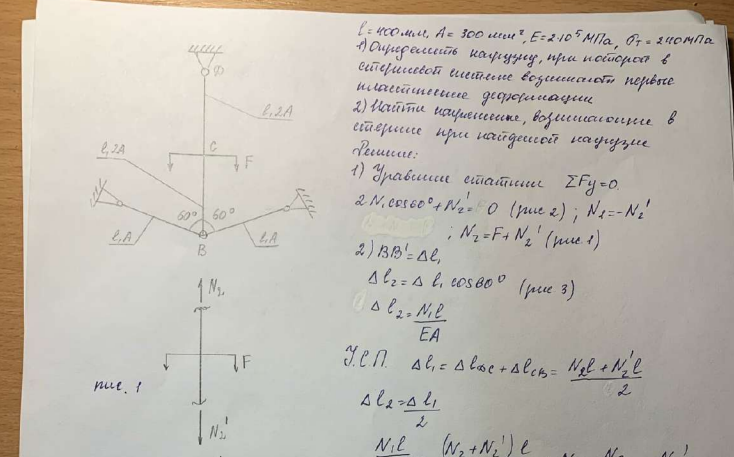 l=400мм, A=300мм², E=2·10⁵МПа, σт=240МПа
1) Определить нагрузку, при которой в
стержневой системе возникают первые
пластические деформации
2) Найти напряжение, возникающие в
стержне при найденой нагрузке
Решение:
1) Уравнение статики ΣFy=0.
2N₁cos60°+N₂'=0 (рис 2); N₁=-N₂'
; N₂=F+N₂' (рис. 1)
2) BB'=Δl₁
Δl₂=Δl₁cos60° (рис 3)
Δl₂=N₁l/EA
У.С.П. Δl₁=ΔlDC+ΔlCB=N₂l+N₂'l/2
Δl₂=Δl₁/2
N₁l (N₂+N₂')l
D
l,2A
C
l,2A
F
60° 60°
l,A
B
l,A
N₂
F
рис. 1
N₂'